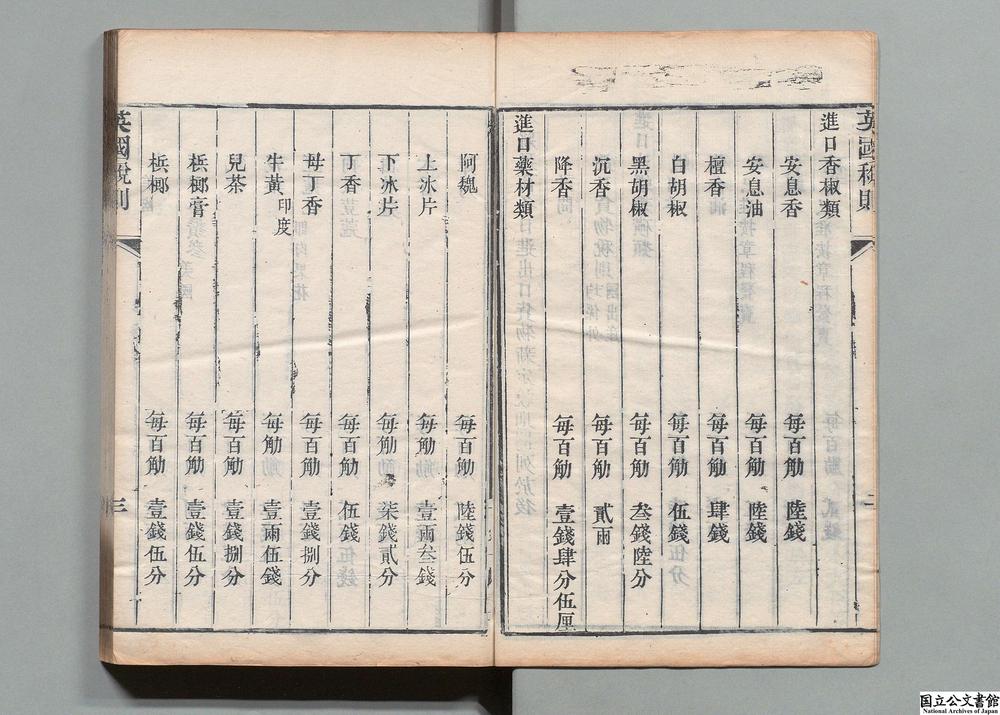 英國稅則
二
進口香椒類
安息香 每百觔 陸錢
安息油 每百觔 陸錢
檀香 每百觔 肆錢
白胡椒 每百觔 伍錢
黑胡椒 每百觔 叁錢陸分
沉香 每百觔 貳兩
降香 每百觔 壹錢肆分伍厘
進口藥材類
阿魏 每百觔 陸錢伍分
上氷片 每觔 壹兩叁錢
下氷片 每觔 柒錢貳分
丁香 每百觔 伍錢
母丁香 每百觔 壹錢捌分
牛黃 印度 每觔 壹兩伍錢
兒茶 每百觔 壹錢捌分
梹榔膏 每百觔 壹錢伍分
梹榔 每百觔 壹錢伍分
英國稅則
三
国立公文書館
National Archives of Japan